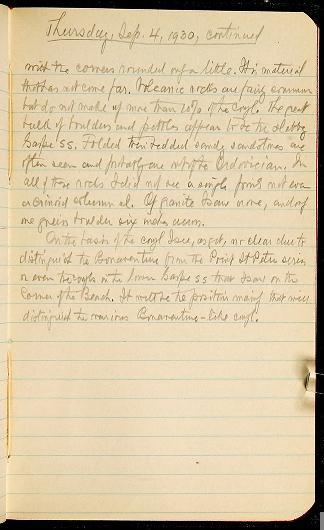 Thursday, Sep. 4, 1930, continued
with the corners rounded only a little. It is material
that has not come far. Volcanic rocks are fairly common
but do not make up more than 10% of the congl. The great
bulk of boulders and pebbles appear to be the
Gaspe SS. Folded thin bedded sandy sandstones are
often seen and probably are out of the Ordovician. In
all of these rocks I did not see a single fossil not even
a crinoid columnal. Of granite I saw none, and of
one gneiss boulder six inches across.
On the basis of the congl I see, as yet, no clear clue to
distinguish the Bonaventure from the Point St Peter series
or even the congls in the lower Gaspe SS that I saw on the
corner of the Beach. It will be the position mainly that will
distinguish the various Bonaventure-like congl.